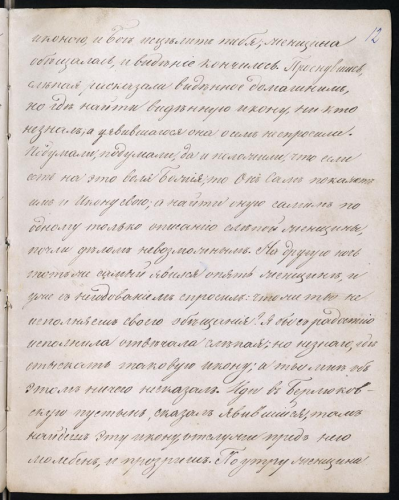 12
иконою, и Богъ исцѣлитъ тебя; женщина
обѣщалась, и видѣніе кончилось. Проснувшись,
слѣпая, разсказала видѣнное домашнимъ,
но гдѣ найти видѣнную икону, ни кто
незналъ, а у явившагося она о семъ неспросила.
Подумали, подумали, да и положили, что если
есть на это воля Божія, то Онъ Самъ покажетъ
имъ и Икону свою; а найти оную самимъ по
одному только описанію слѣпой женщины,
почли дѣломъ невозможнымъ. На другую ночь
тотъ же старецъ явился опять женщинѣ, и
уже съ негодованіемъ спросилъ: что же ты не
исполняешь своего обѣщанія? Я бы съ радостію
исполнила отвѣчала слѣпая; но незнаю, гдѣ
отыскать таковую икону; а ты мнѣ объ
этомъ ничего несказалъ. Иди въ Берлюков-
скую пустынь, сказалъ явившійся; тамъ
найдешь эту икону, отслужи предъ нею
молебенъ, и прозришь. По утру женщина